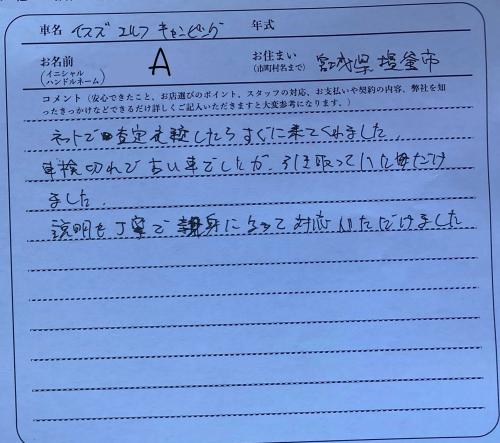 車名 イスズ エルフ キャンピング 年式
お名前 (イニシャル ハンドルネーム) A お住まい (市町村名まで) 宮城県塩釜市
コメント(安心できたこと、お店選びのポイント、スタッフの対応、お支払いや契約の内容、弊社を知
ったきっかけなどできるだけ詳しくご記入いただきますと大変参考になります。)
ネットで査定 したらすぐに来てくれました。
車検切れで古い車でしたが、引き取っていただけ
ました。
説明も丁寧で親身になって対応いただけました